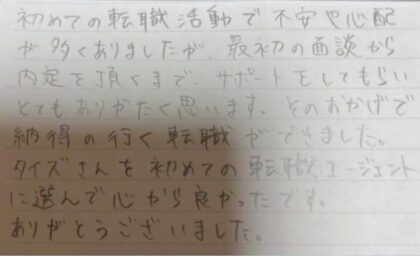 初めての転職活動で不安や心配
が多くありましたが、最初の面談から
内定を頂くまで、サポートをしてもらい
とてもありがたく思います。そのおかげで
納得の行く転職ができました。
タイズさんを初めての転職エージェント
に選んで心から良かったです。
ありがとうございました。